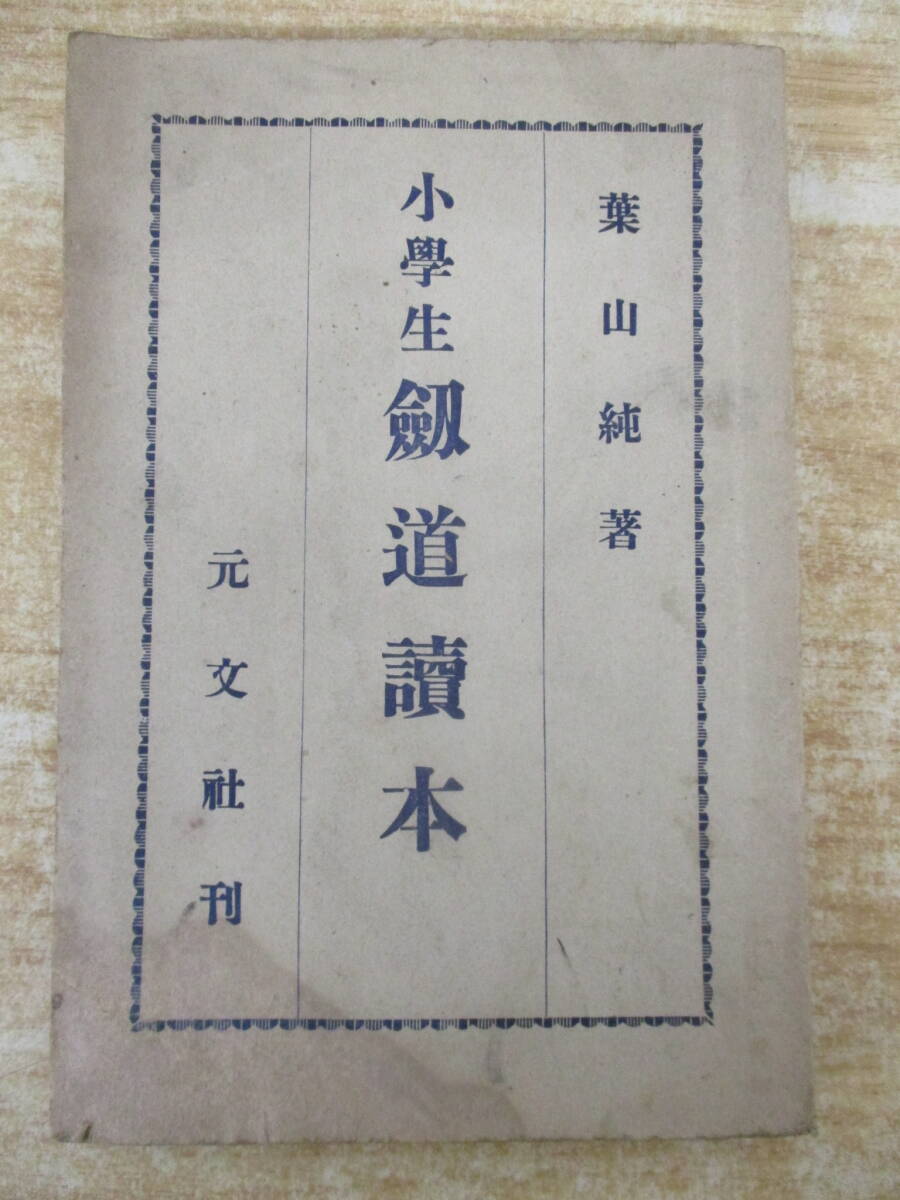 葉山純著
小學生劔道讀本
元文社刊